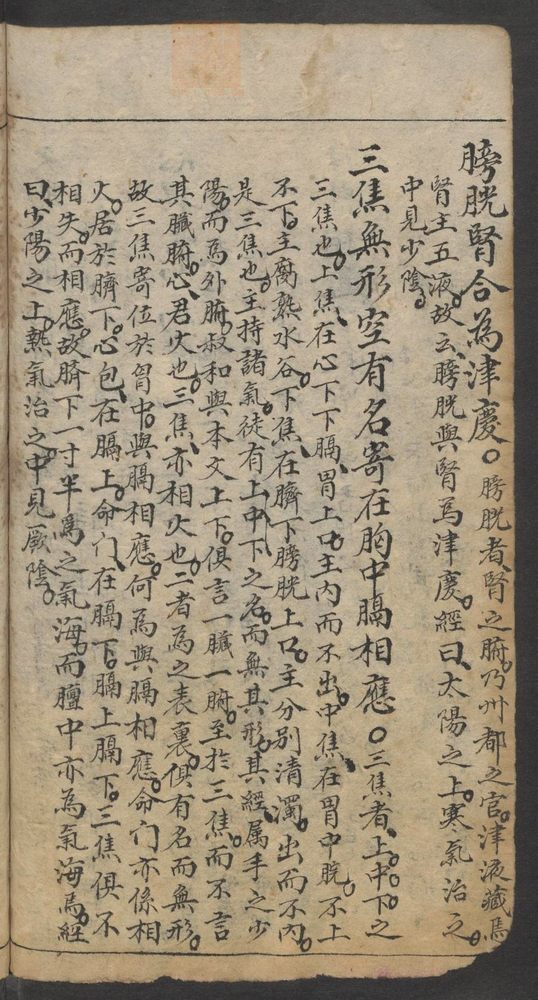 膀胱腎合為津慶。膀胱者、腎之腑。乃州都之官。津液藏焉。
腎主五液。故云膀胱與腎爲津慶。經曰、太陽之上。寒氣治之。
中見少陰。
三焦無形空有名寄在胸中膈相應。三焦者、上。中。下。之
三焦也。上焦、在心下下膈、胃上口。主内而不出。中焦、在胃中脘。不上
不下。主腐熟水谷。下焦、在臍下膀胱上口。主分别清濁。出而不内。
是三焦也。主持諸氣。徒有上、中、下之名。而無其形。其經、属手之少
陽。而爲外腑。叔和與本文上下。俱言一臟一腑。至於三焦。而不言
其臟腑。心、君火也。三焦、亦相火也。二者為之表裏。俱有名而無形。
故三焦寄位於胷中。與膈相應。何為與膈相應。命门亦係相
火。居於臍下。心包、在膈上。命门、在膈下。膈上膈下。三焦俱不
相失。而相應。故臍下一寸半爲之氣海。而膻中亦為氣海焉。經
曰、少陽之上。熱氣治之。中見厥陰。